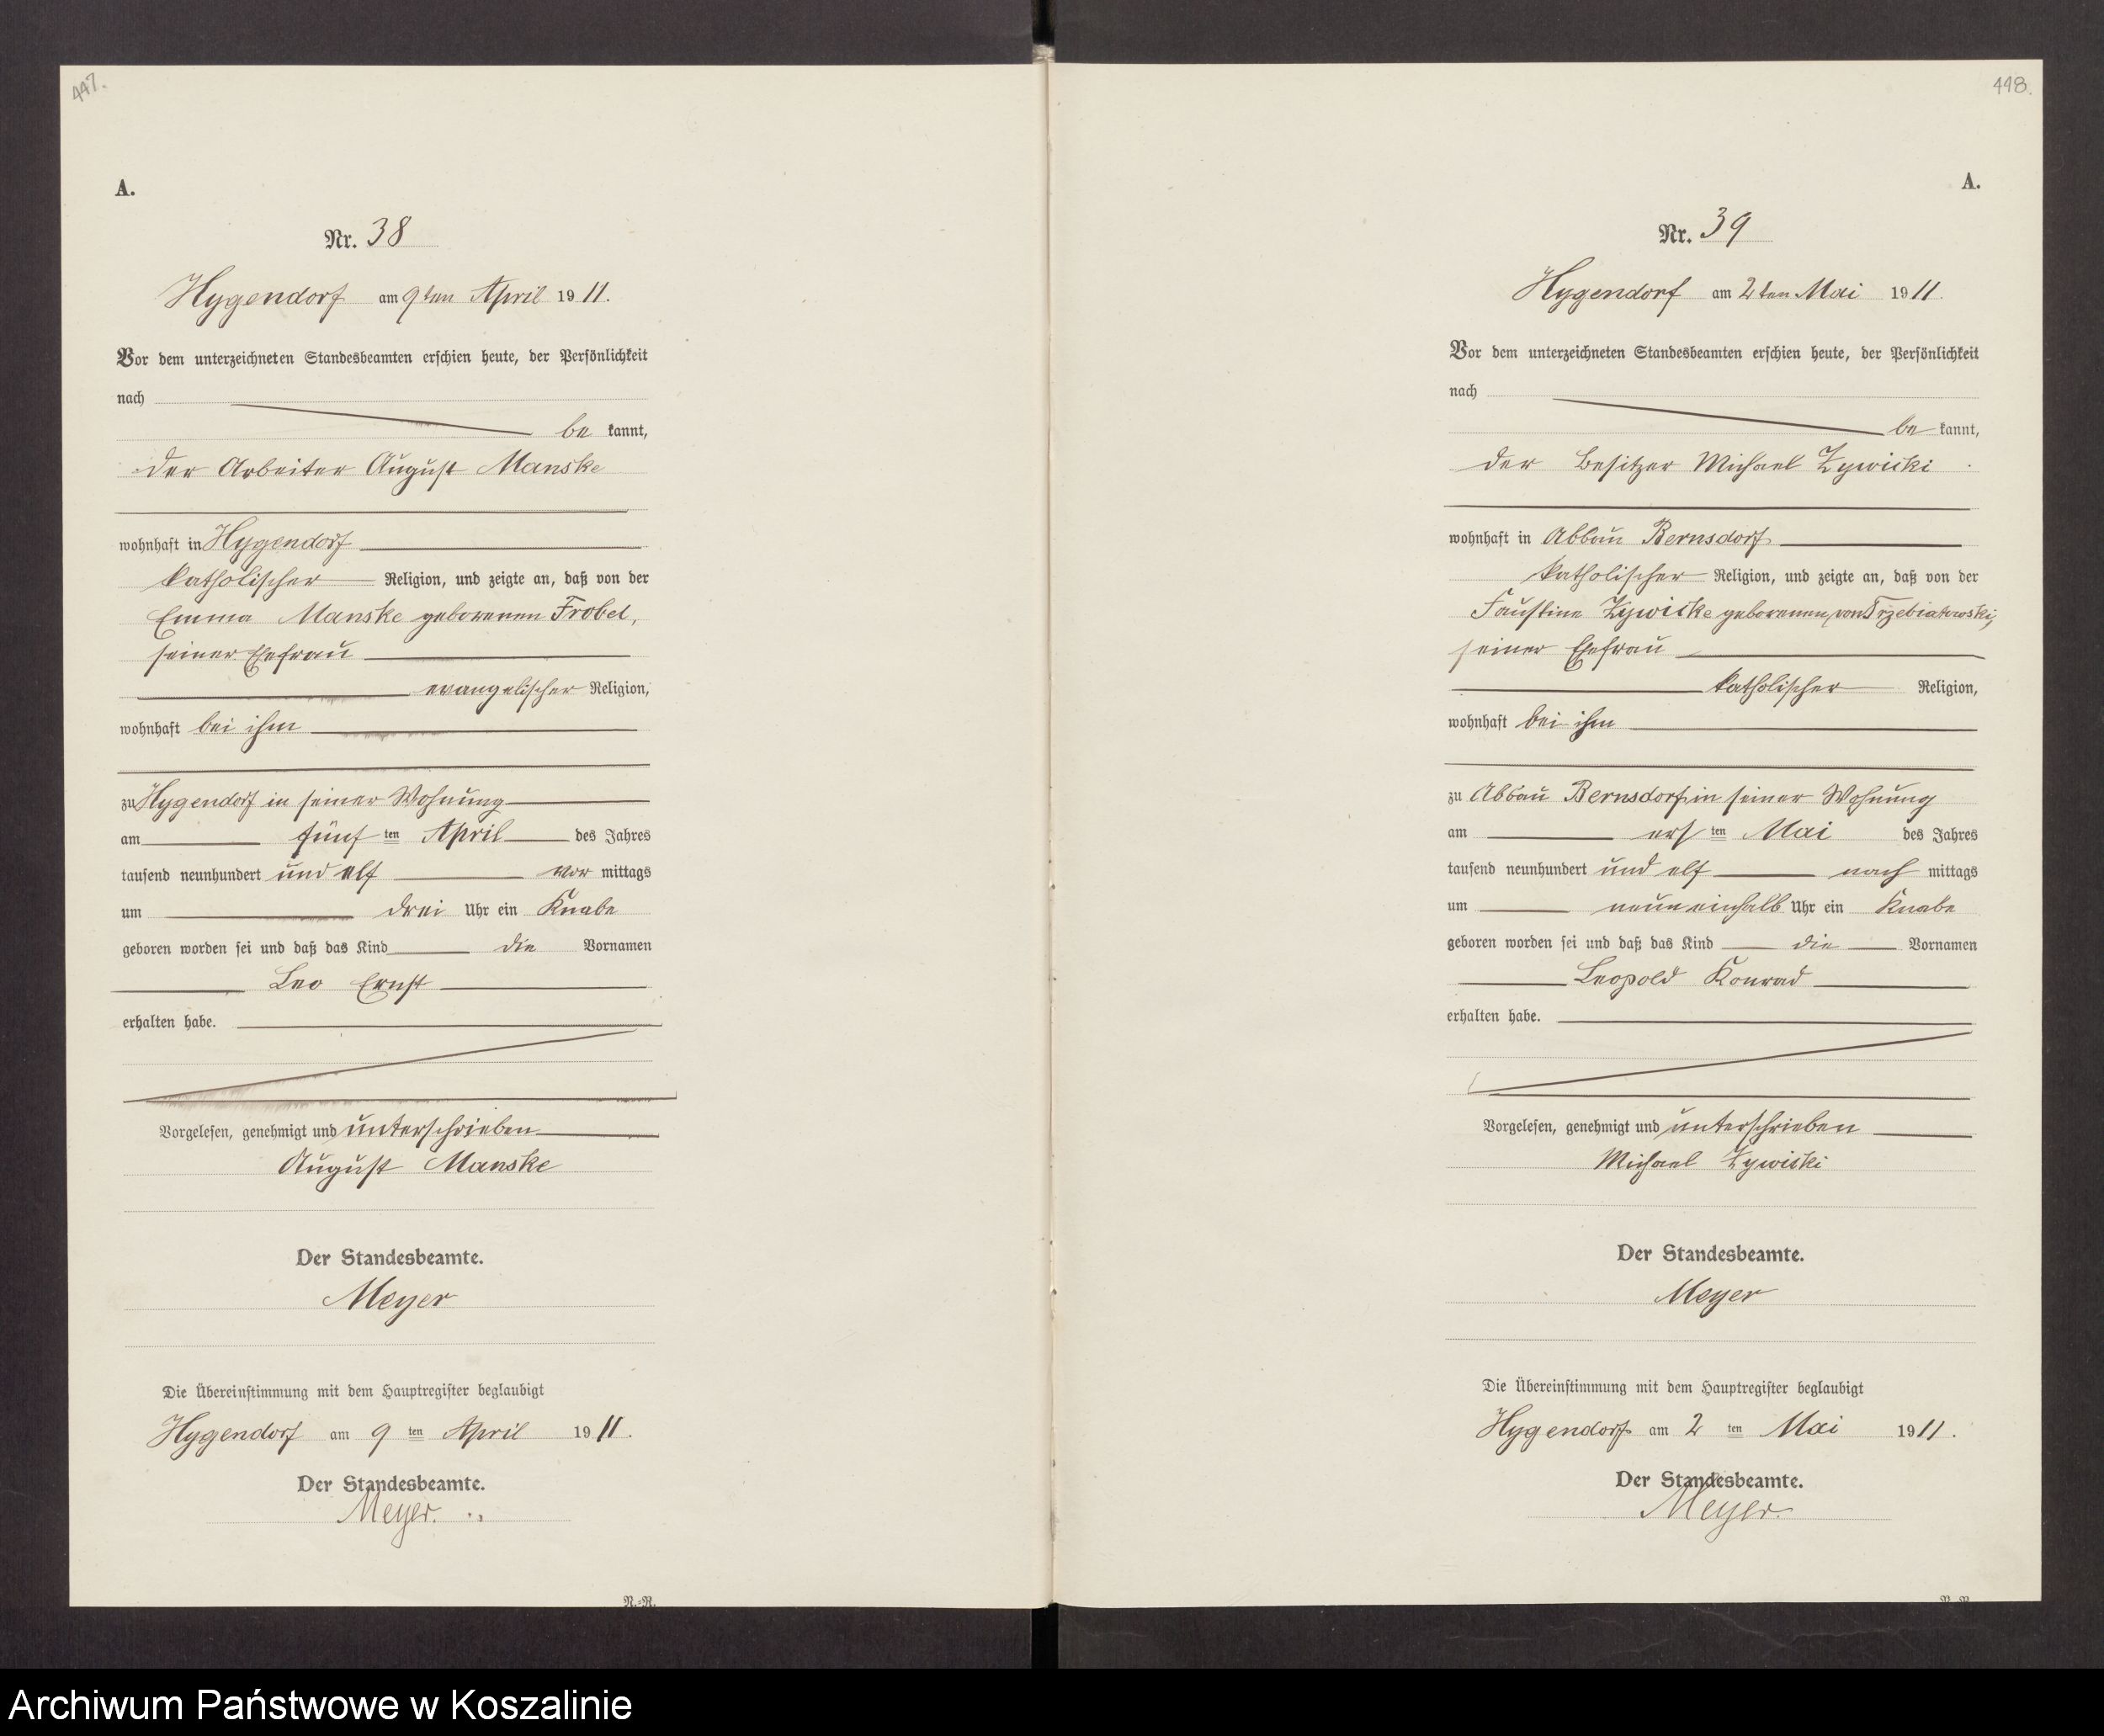 447.
A.
Nr. 38
Hygendorf am 9ten April 1911.
Vor dem unterzeichneten Standesbeamten erschien heute, der Persönlichkeit
nach
be kannt,
der Arbeiter August Manske
wohnhaft in Hygendorf
katholischer Religion, und zeigte an, daß von der
Emma Manske geborenen Frobel,
seiner Ehefrau
evangelischer Religion,
wohnhaft bei ihm
zu Hygendorf in seiner Wohnung
am fünf ten April des Jahres
tausend neunhundert und elf vor mittags
um drei Uhr ein Knabe
geboren worden sei und daß das Kind die Vornamen
Leo Ernst
erhalten habe.
Vorgelesen, genehmigt und unterschrieben
August Manske
Der Standesbeamte.
Meyer
Die Übereinstimmung mit dem Hauptregister beglaubigt
Hygendorf am 9 ten April 1911.
Der Standesbeamte.
Meyer.
N.-R.
448.
A.
Nr. 39
Hygendorf am 2ten Mai 1911.
Vor dem unterzeichneten Standesbeamten erschien heute, der Persönlichkeit
nach
be kannt,
der Besitzer Michael Zywicki
wohnhaft in Abbau Bernsdorf
katholischer Religion, und zeigte an, daß von der
Faustine Zywicke geborenen von Trzebiatowski,
seiner Ehefrau
katholischer Religion,
wohnhaft bei ihm
zu Abbau Bernsdorf in seiner Wohnung
am ers ten Mai des Jahres
tausend neunhundert und elf nach mittags
um neuneinhalb Uhr ein Knabe
geboren worden sei und daß das Kind die Vornamen
Leopold Konrad
erhalten habe.
Vorgelesen, genehmigt und unterschrieben
Michael Zywicki
Der Standesbeamte.
Meyer
Die Übereinstimmung mit dem Hauptregister beglaubigt
Hygendorf am 2 ten Mai 1911.
Der Standesbeamte.
Meyer.
Archiwum Państwowe w Koszalinie